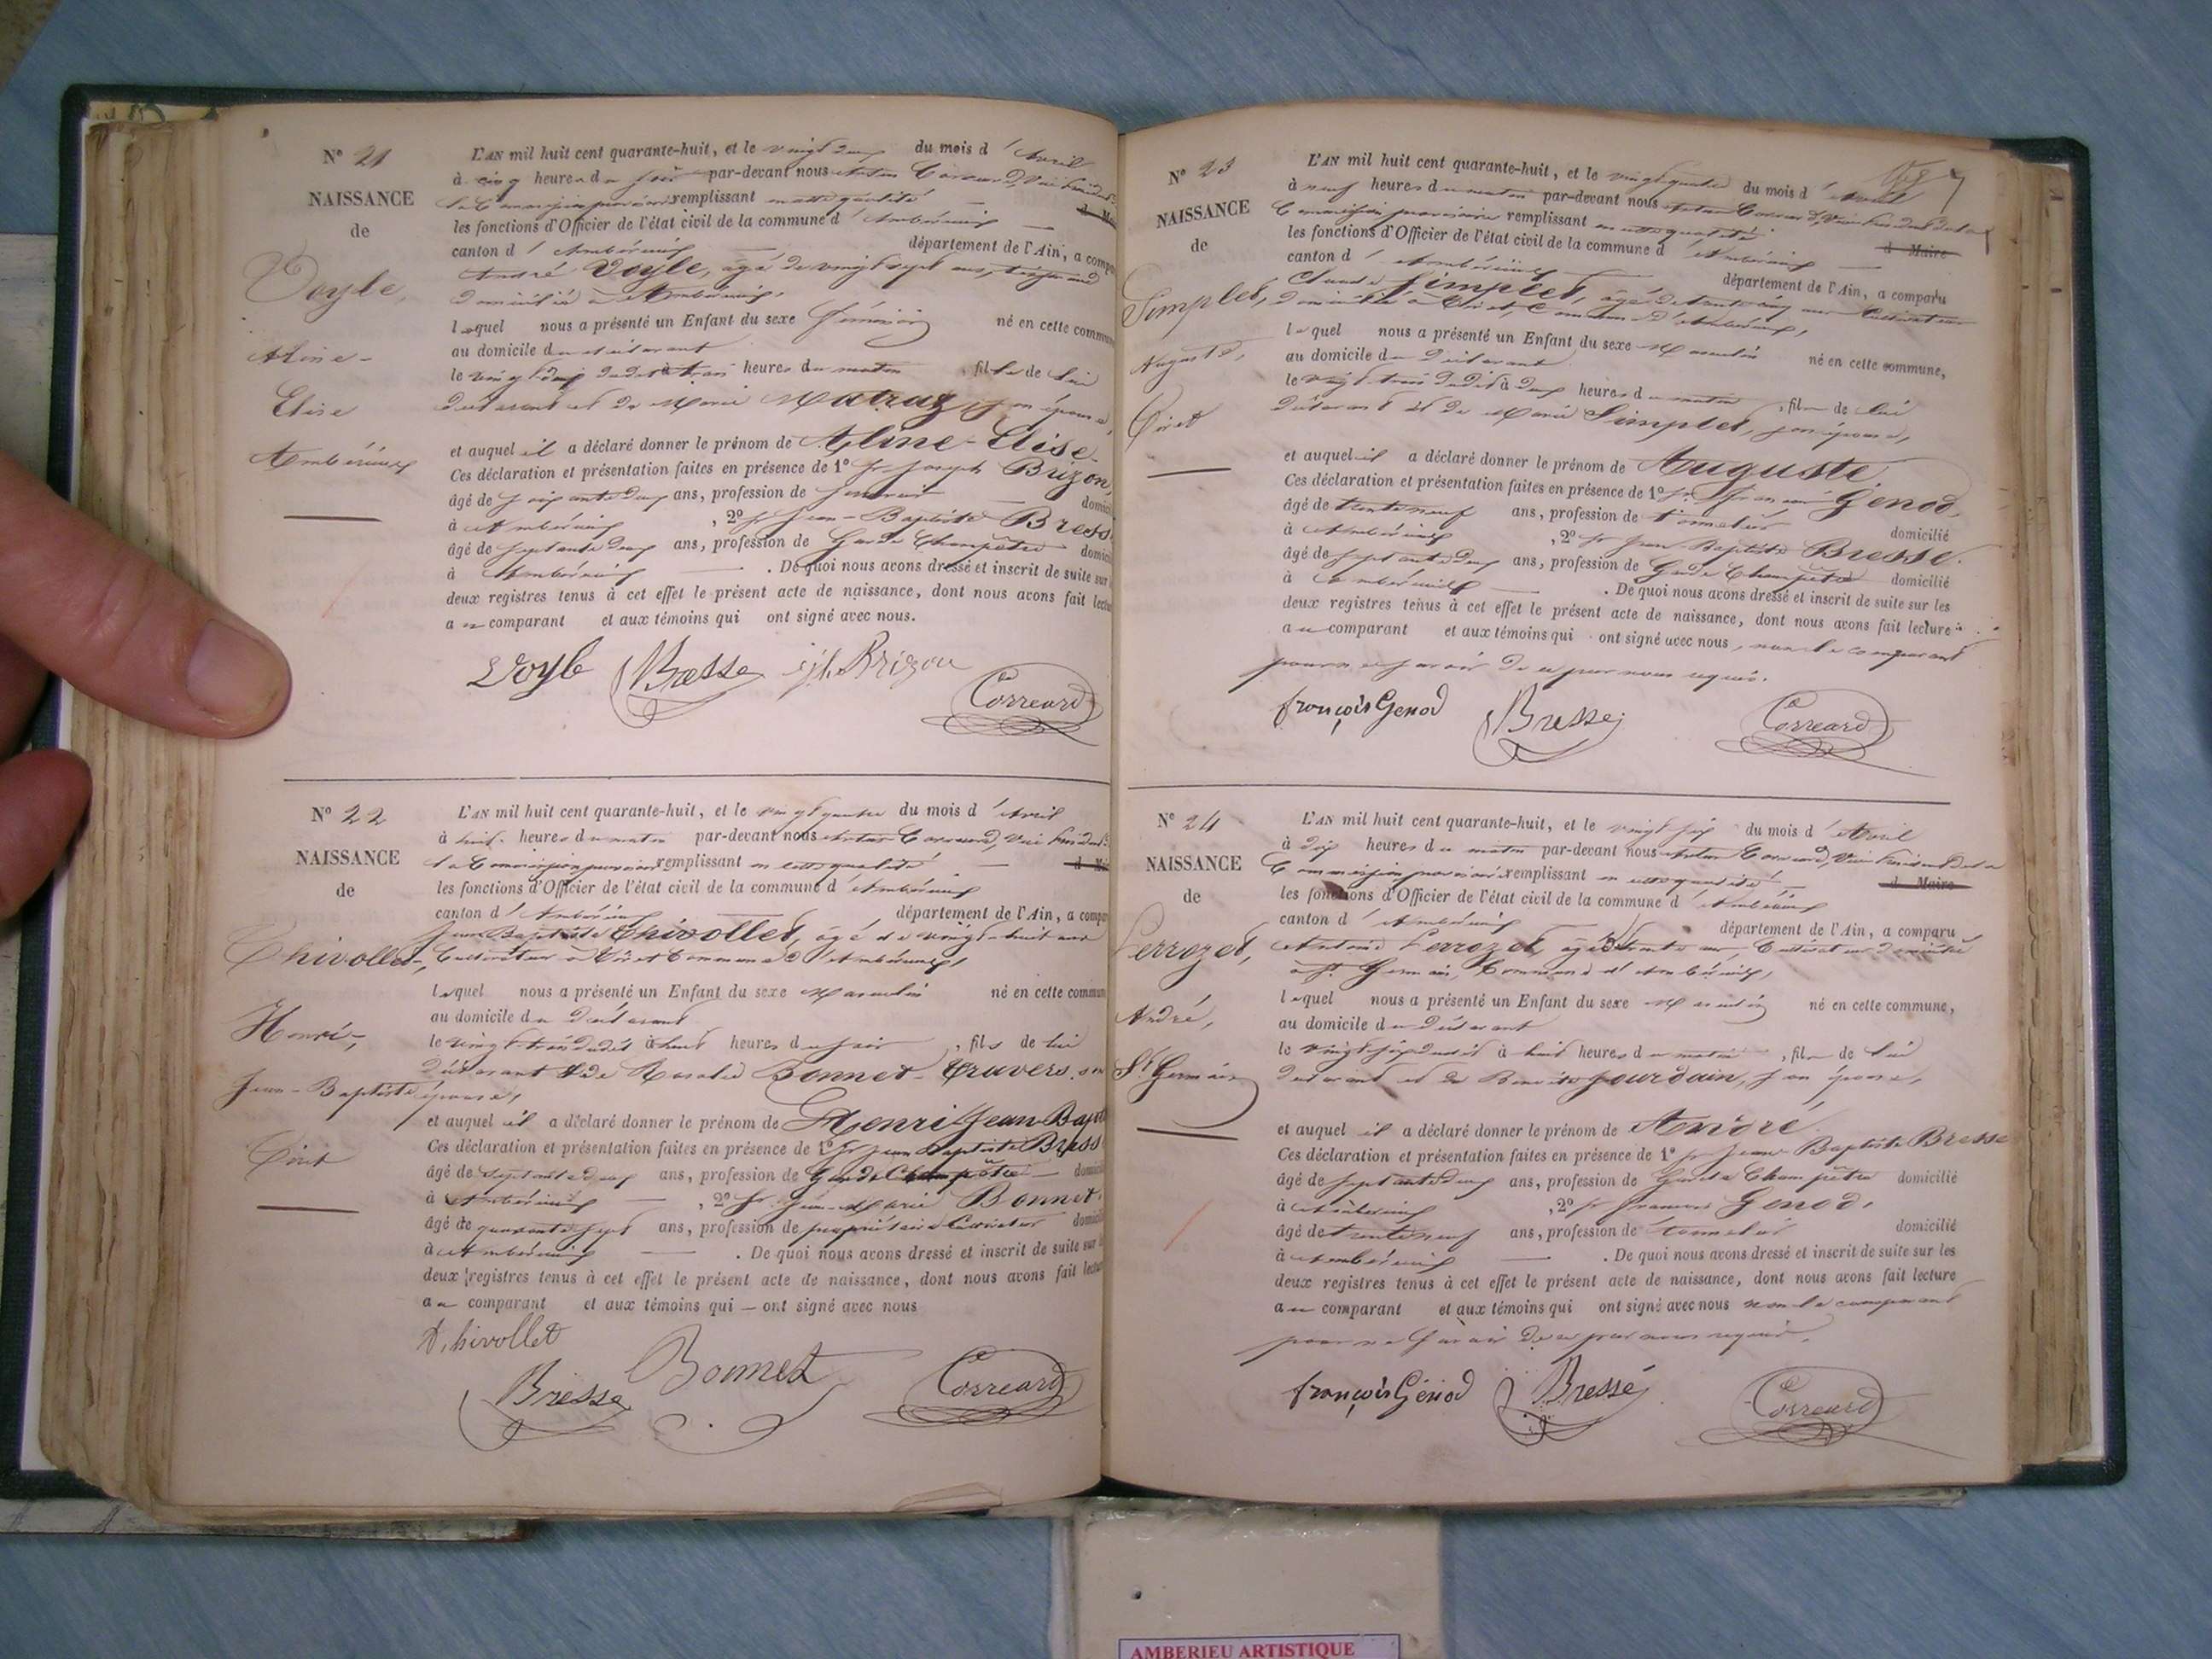 N° 21
NAISSANCE
de
Voyle,
Aline-
Elise
Ambérieux
L'AN mil huit cent quarante-huit, et le vingt deux du mois d'Avril
à cinq heures du soir par-devant nous Correard, Vice Président
la Commission provisoire remplissant en cette qualité
les fonctions d'Officier de l'état civil de la commune d'Ambérieux
canton d'Ambérieux département de l'Ain, a compa
André Voyle, âgé de vingt sept ans,
domicilié à Ambérieux,
lequel nous a présenté un Enfant du sexe féminin né en cette commun
au domicile du déclarant
le vingt deux dudit à trois heures du matin, fille de lui
déclarant et de Marie Matraz son épouse,
et auquel il a déclaré donner le prénom de Aline-Elise
Ces déclaration et présentation faites en présence de 1° Sr Joseph Brizon,
âgé de soixante deux ans, profession de domici
à Ambérieux, 2° Sr Jean-Baptiste Bress
âgé de septante deux ans, profession de Garde Champêtre domici
à Ambérieux. De quoi nous avons dressé et inscrit de suite sur
deux registres tenus à cet effet le présent acte de naissance, dont nous avons fait lectu
au comparant et aux témoins qui ont signé avec nous.
Voyle Bresse Brizon
Correard
N° 22
NAISSANCE
de
Chivollet,
Henri,
Jean-Baptiste
L'AN mil huit cent quarante-huit, et le vingt quatre du mois d'Avril
à huit heures du matin par-devant nous Correard, Vice Président
la Commission provisoire remplissant en cette qualité
les fonctions d'Officier de l'état civil de la commune d'Ambérieux
canton d'Ambérieux département de l'Ain, a compa
Jean Baptiste Chivollet, âgé de vingt-huit ans
Cultivateur à Commune d'Ambérieux,
lequel nous a présenté un Enfant du sexe Masculin né en cette commun
au domicile du Déclarant
le vingt-trois dudit à huit heures du soir, fils de lui
Déclarant & de Rosalie Bonnet-Travers, son
épouse,
et auquel il a déclaré donner le prénom de Henri Jean Bapt
Ces déclaration et présentation faites en présence de 1° Sr Jean Baptiste Bress
âgé de septante deux ans, profession de Garde Champêtre domici
à Ambérieux, 2° Sr Jean-Marie Bonnet
âgé de quarante sept ans, profession de propriétaire Cultivateur domici
à Ambérieux. De quoi nous avons dressé et inscrit de suite sur
deux registres tenus à cet effet le présent acte de naissance, dont nous avons fait lectu
au comparant et aux témoins qui ont signé avec nous
Chivollet
Bresse Bonnet Correard
N° 23
NAISSANCE
de
Simplet,
Auguste,
L'AN mil huit cent quarante-huit, et le vingt quatre du mois d'Avril
à neuf heures du matin par-devant nous Correard, Vice Président de la
Commission provisoire remplissant en cette qualité
d Maire
les fonctions d'Officier de l'état civil de la commune d'Ambérieux
canton d'Ambérieux département de l'Ain, a comparu
Claude Simplet, âgé de trente cinq ans Cultivateur
domicilié à Commune d'Ambérieux,
lequel nous a présenté un Enfant du sexe Masculin né en cette commune,
au domicile du Déclarant
le vingt trois dudit à deux heures du matin, fils de lui
déclarant et de Marie Simplet, son épouse,
et auquel il a déclaré donner le prénom de Auguste
Ces déclaration et présentation faites en présence de 1° Sr François Genod,
âgé de trente neuf ans, profession de tonnelier domicilié
à Ambérieux, 2° Sr Jean Baptiste Bresse.
âgé de septante deux ans, profession de Garde Champêtre domicilié
à Ambérieux. De quoi nous avons dressé et inscrit de suite sur les
deux registres tenus à cet effet le présent acte de naissance, dont nous avons fait lecture
au comparant et aux témoins qui ont signé avec nous, non le comparant
pour ne savoir de ce par nous requis.
françois Genod Bresse Correard
N° 24
NAISSANCE
de
Perrozet,
André,
St Germain
L'AN mil huit cent quarante-huit, et le vingt six du mois d'Avril
à dix heures du matin par-devant nous Correard, Vice Président de la
Commission provisoire remplissant en cette qualité
d Maire
les fonctions d'Officier de l'état civil de la commune d'Ambérieux
canton d'Ambérieux département de l'Ain, a comparu
Antoine Perrozet, âgé de trente ans, Cultivateur domicilié
à St Germain, Commune d'Ambérieux,
lequel nous a présenté un Enfant du sexe Masculin né en cette commune,
au domicile du Déclarant
le vingt six dudit à huit heures du matin, fils de lui
déclarant et de Benoite Jourdain, son épouse,
et auquel il a déclaré donner le prénom de André
Ces déclaration et présentation faites en présence de 1° Sr Jean Baptiste Bresse
âgé de septante deux ans, profession de Garde Champêtre domicilié
à Ambérieux, 2° Sr François Genod,
âgé de trente neuf ans, profession de tonnelier domicilié
à Ambérieux. De quoi nous avons dressé et inscrit de suite sur les
deux registres tenus à cet effet le présent acte de naissance, dont nous avons fait lecture
au comparant et aux témoins qui ont signé avec nous non le comparant
pour ne savoir de ce par nous requis.
françois Génod Bressé Correard
AMBERIEU ARTISTIQUE